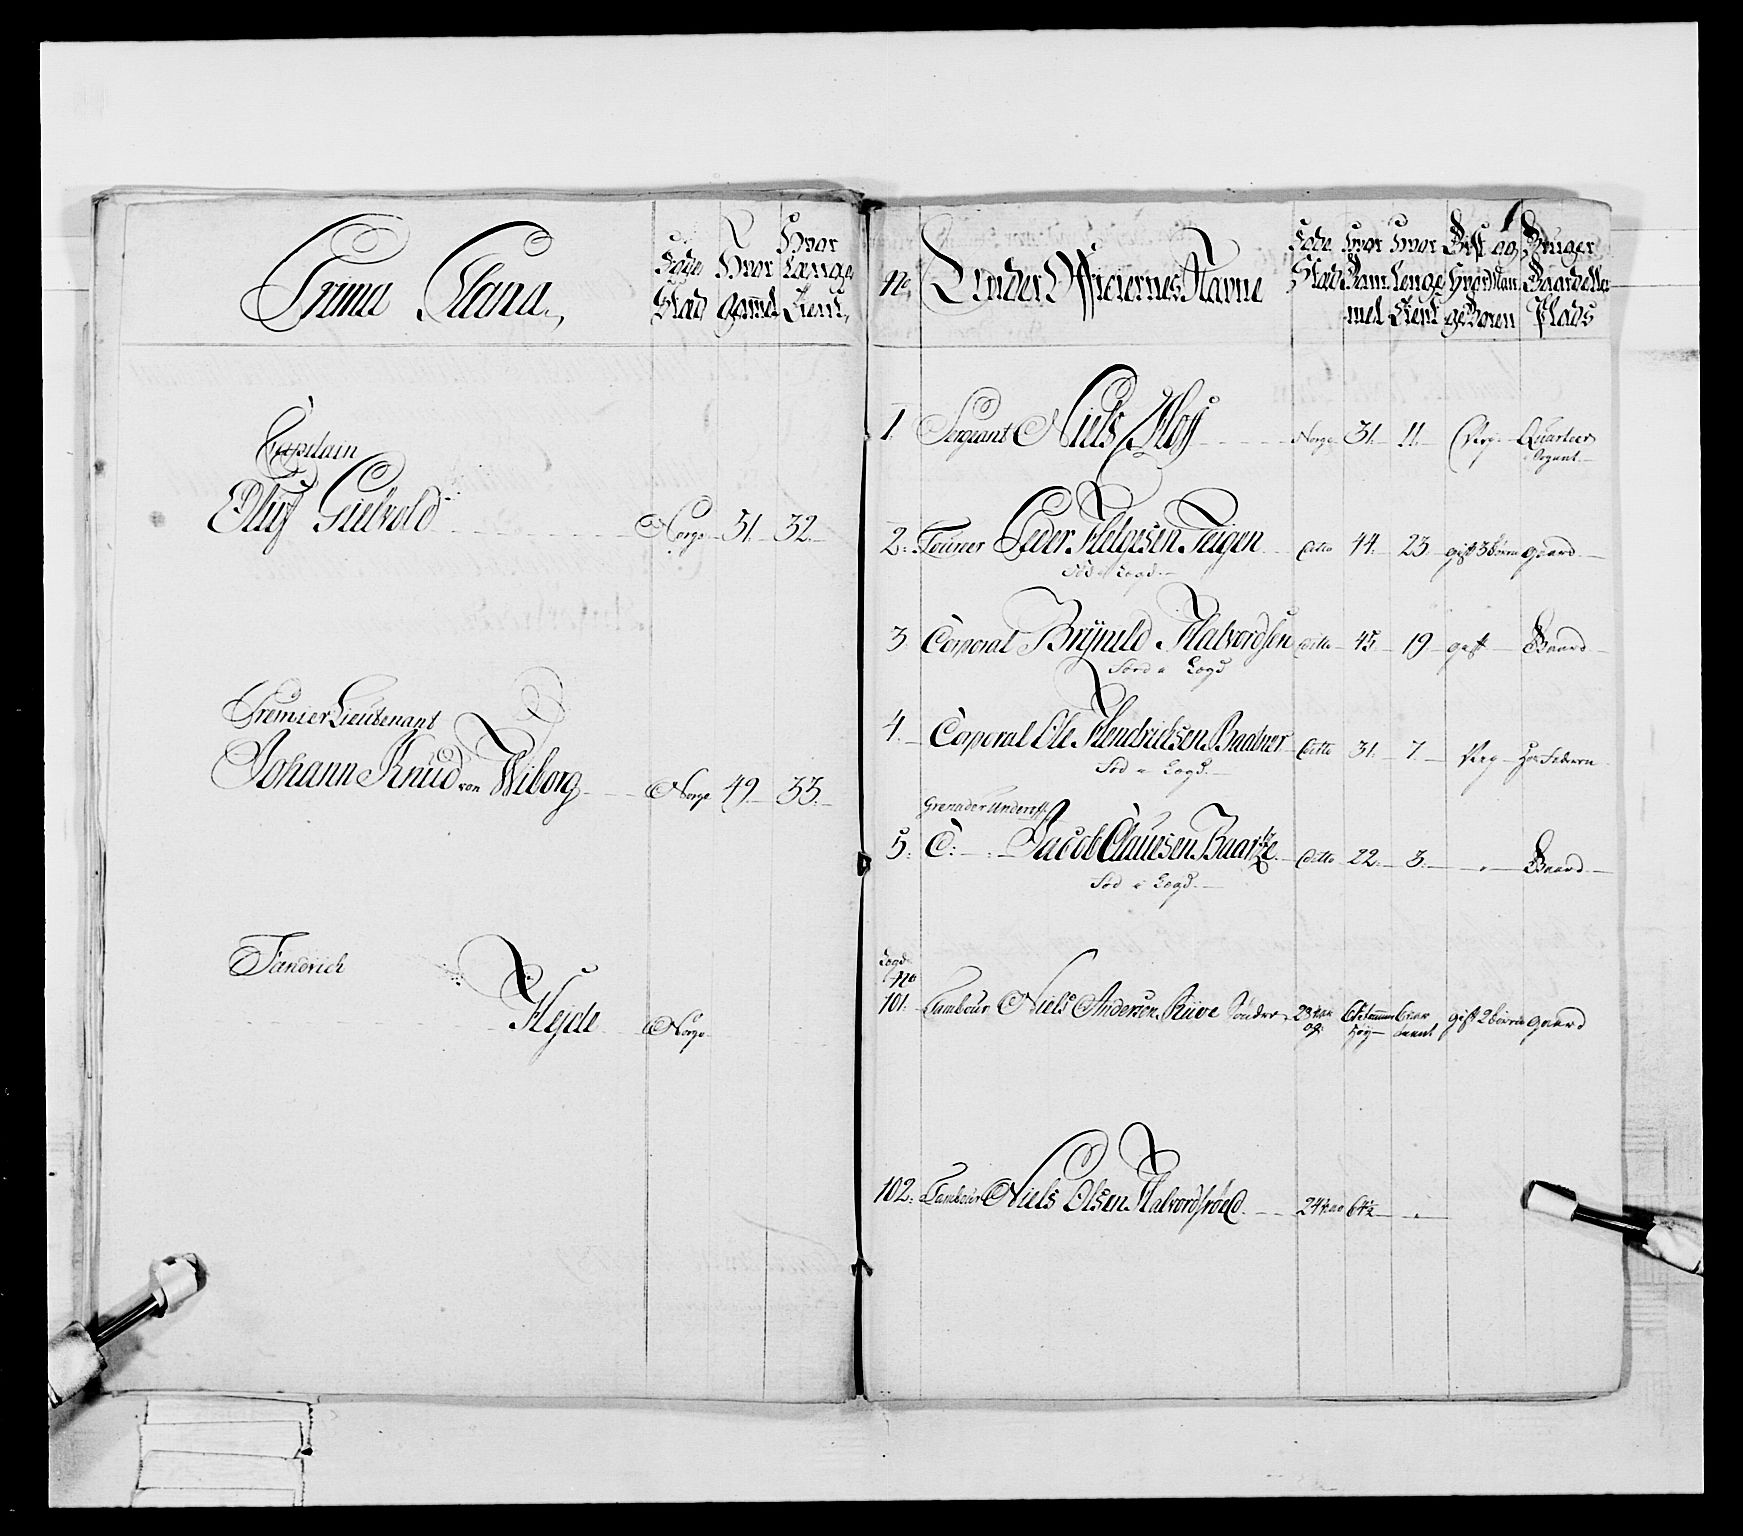 Prima Plana,
Føde Stad
Hvor gaml
Hvor Længe Tient,
Capitain
Oluf Gielbold Norge 51. 32.
Premier Lieutenant
Johann Knud von Wiborg Norge 49. 33.
Fändrich
Hejde Norge
No
Under Officiernes Navne
Føde Stad
Hvor Gam mel
Hvor Lenge Tient
Gift og Hvor Man geboren
Bruger Gaard eller Plads
1. Sergeant Niels Norge 31. 11. Quarteer
2. Fourier Peder Helgesen Teigen ditto 44. 23 gift 3 børn gaard
Lægd
3 Corporal Brÿnild Halvordsen ditto 45 19 gift Gaard
Lægd
4. Corporal Ole Hendriksen Baabner ditto 31. 7.
Lægd.
Grenader Underoff:
5. C: Jacob Clausen Baar ditto 22. 3. Gaard
Lægd.
Lægd
No
101. Tambour Niels Andersen Riive Søndre 23 gift 2 børn gaard
102. Tambour Niels Olsen Halvordsrøed 24 64½